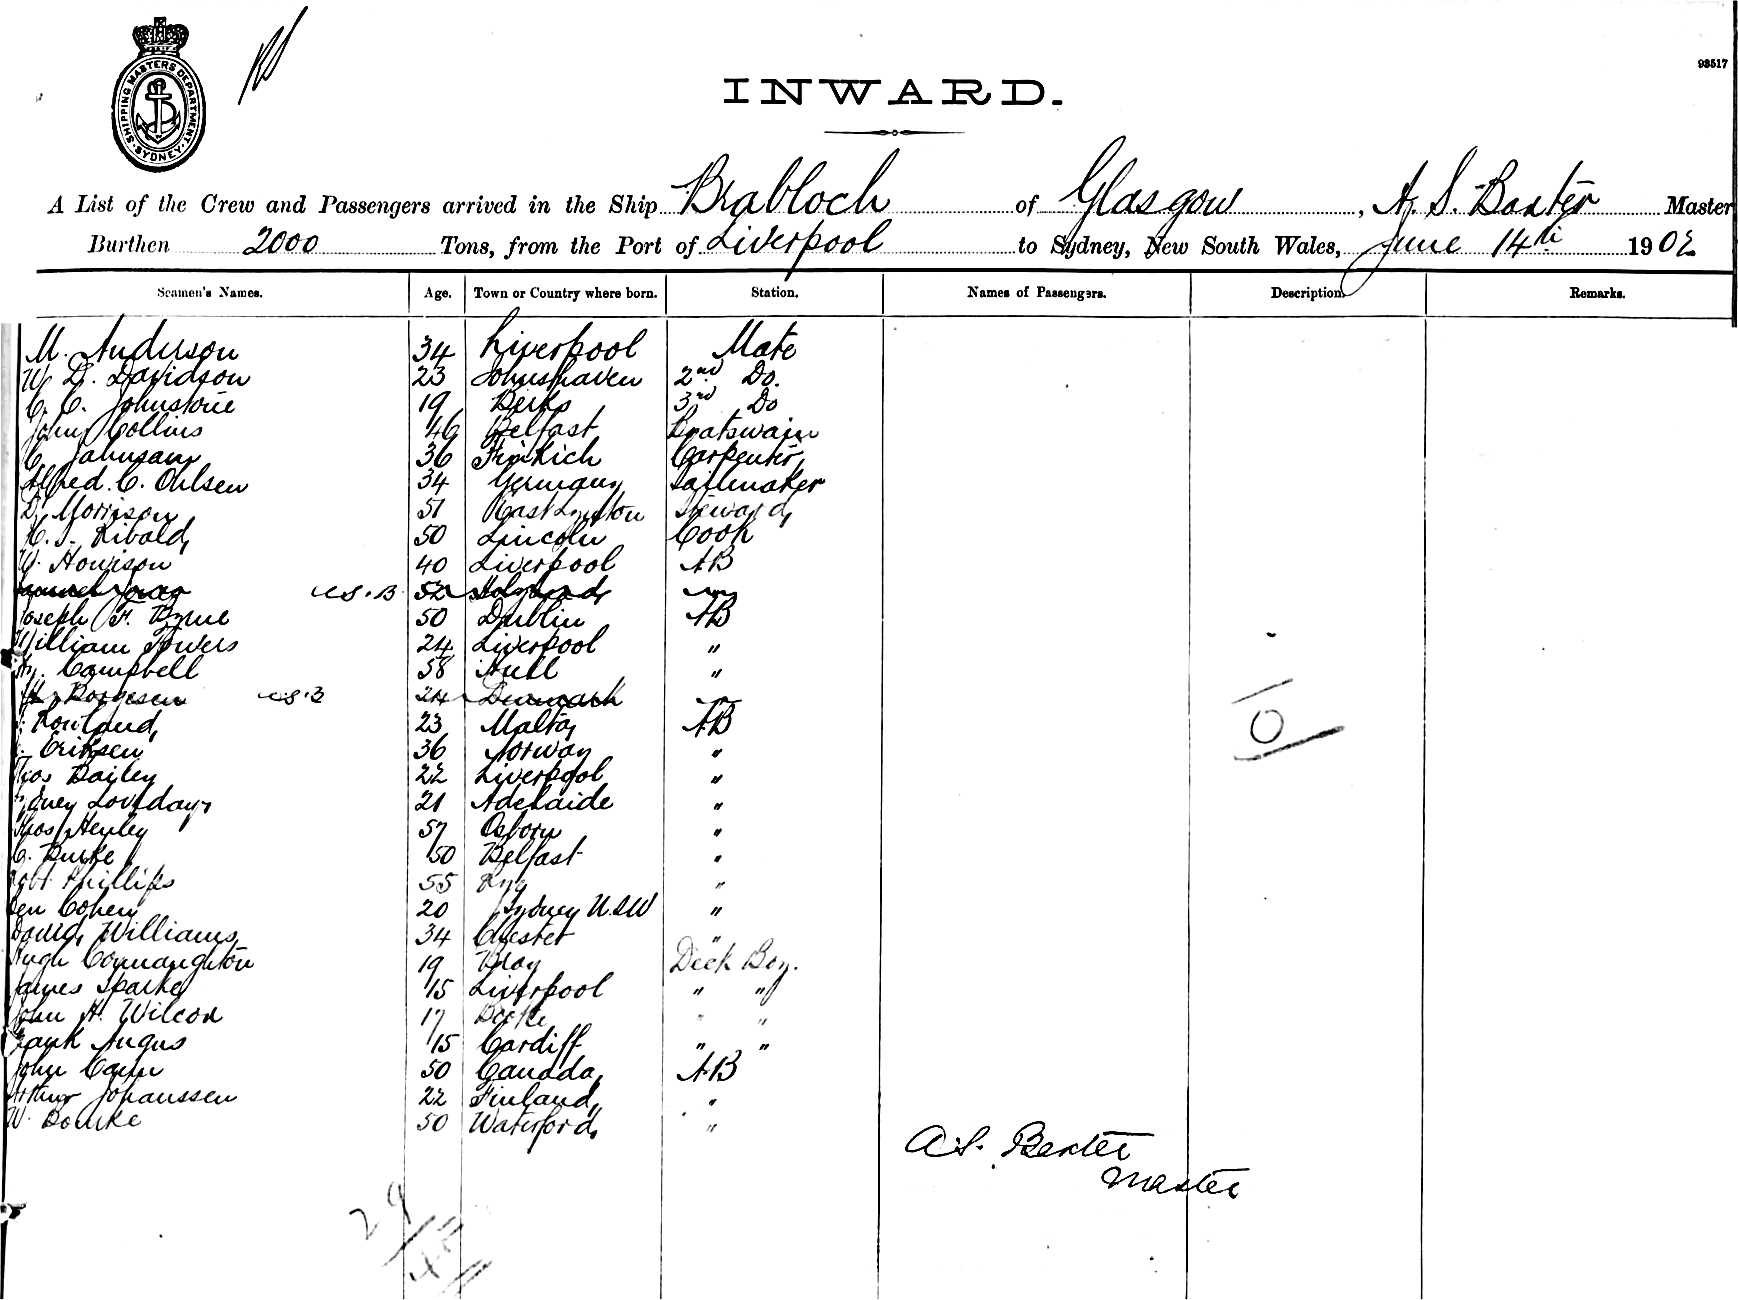 SHIPPING MASTERS DEPARTMENT. SYDNEY.
93517
INWARD.
A List of the Crew and Passengers arrived in the Ship Brabloch of Glasgow, A. S. Baxter Master
Burthen 2000 Tons, from the Port of Liverpool to Sydney, New South Wales, June 14th 1902
Seamen's Names. Age. Town or Country where born. Station. Names of Passengers. Description. Remarks.
M. Anderson 34 Liverpool Mate
W. D. Davidson 23 Johnshaven 2nd Do.
C. C. Johnstone 19 Berks 3rd Do
John Collins 46 Belfast Boatswain
36 Carpenter
Alfred. C. Ohlsen 34 Germany Sailmaker
D. Morrison 51 East Steward
50 Lincoln Cook
W. Howison 40 Liverpool AB
52
Joseph F. Byrne 50 Dublin AB
William Towers 24 Liverpool "
Hy. Campbell 58 Hull "
24 Denmark
Rowland 23 Malta AB
Eriksen 36 Norway "
Thos Bailey 22 Liverpool "
Sydney Loveday 21 Adelaide "
Thos Henley 57 Osborn "
C. Burke 50 Belfast "
Robt Phillips 55 "
Ben Cohen 20 Sydney N.S.W "
David Williams 34 Chester "
Hugh Connaughton 19 Bray Deck Boy.
James Sparke 15 Liverpool " "
John H. Wilcox 17 " "
Frank Angus 15 Cardiff " "
John Cann 50 Canada AB
Arthur Johanssen 22 Finland "
W. Bourke 50 Waterford "
A. S. Baxter
Master
29